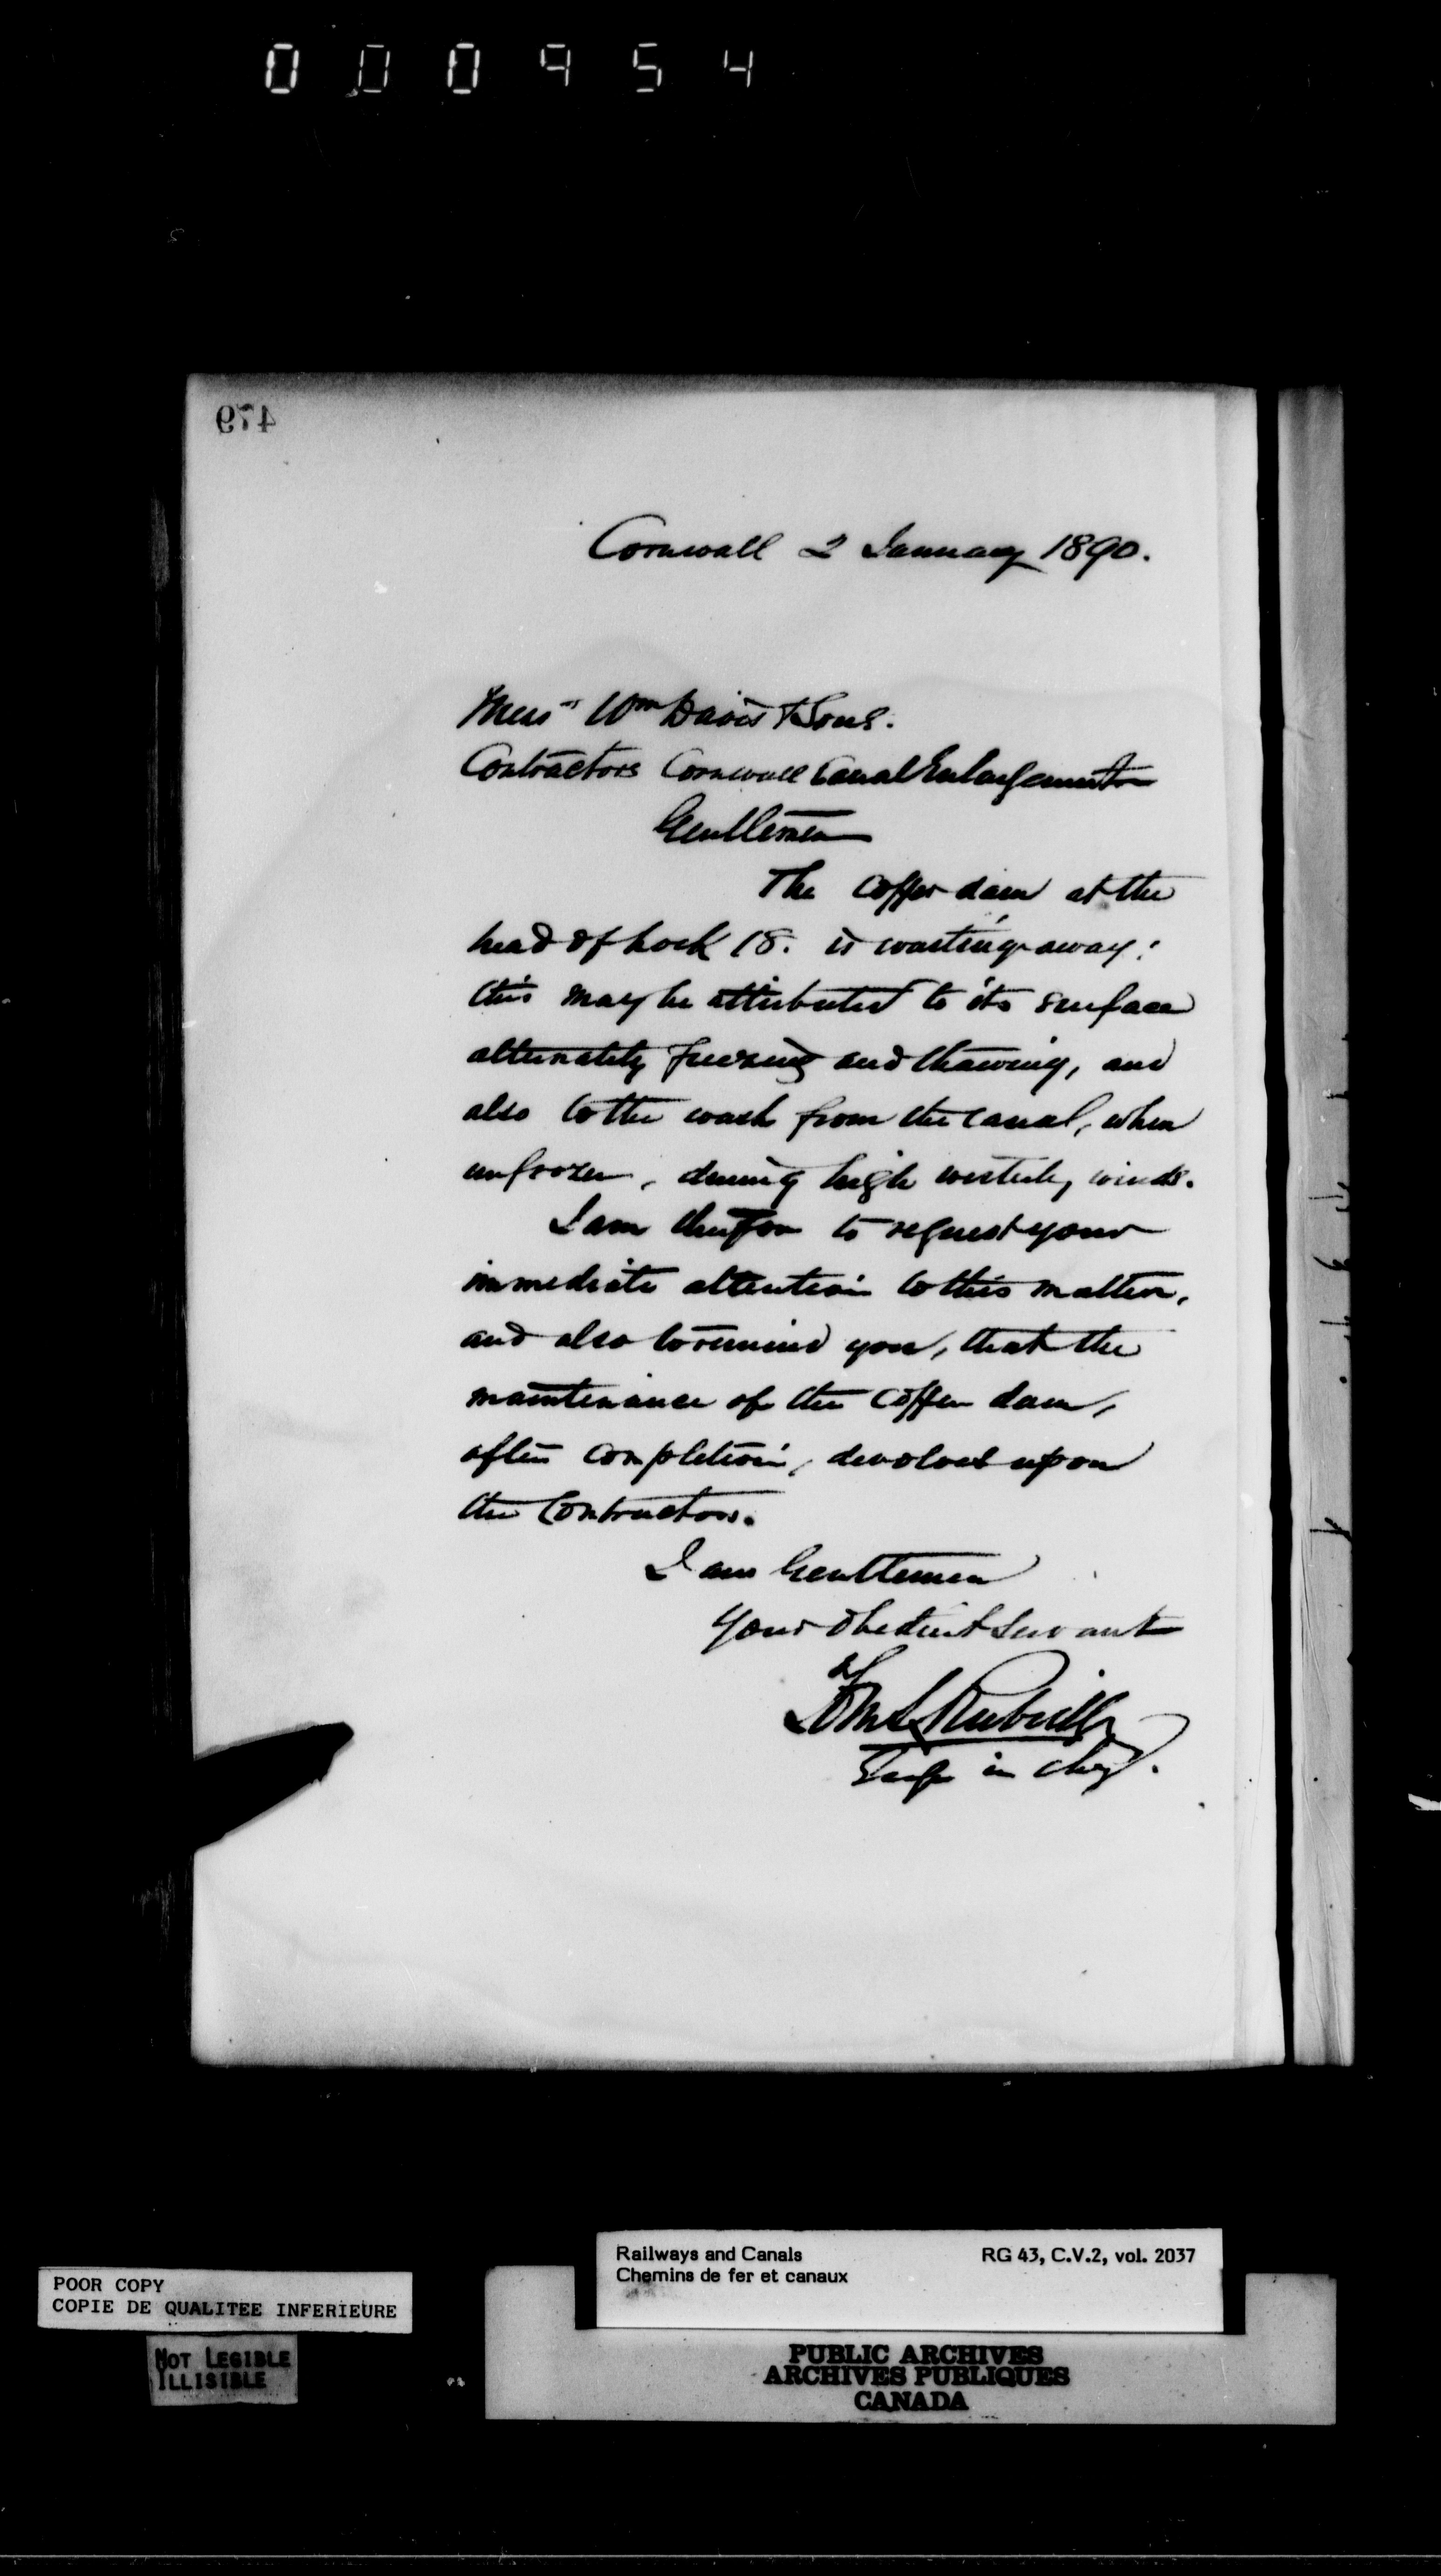 000954
479
Cornwall 2 January 1890.
Messrs Wm Davis & Sons.
Contractors Cornwall Canal Enlargement
Gentlemen
The Coffer dam at the
head of Lock 18. is wasting away;
this may be attributed to its surface
alternately freezing and thawing, and
also to the wash from the canal, when
unfrozen, during high westerly winds.
I am therefore to request your
immediate attention to this matter,
and also to remind you, that the
maintenance of the Coffer dam,
after completion, devolves upon
the Contractors.
I am Gentlemen
Your obedient Servant
Tom S Rubidge
Engr in chg.
Railways and Canals RG 43, C.V.2, vol. 2037
Chemins de fer et canaux
POOR COPY
COPIE DE QUALITEE INFERIEURE
NOT LEGIBLE
ILLISIBLE
PUBLIC ARCHIVES
ARCHIVES PUBLIQUES
CANADA